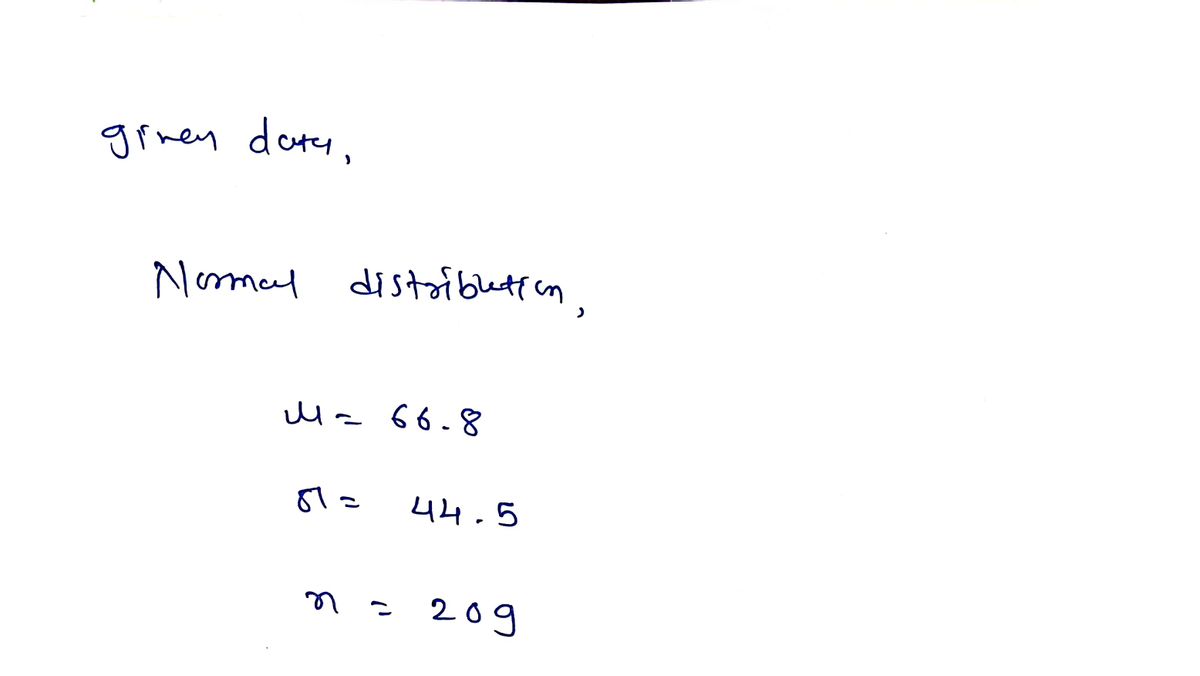 given data,
Normal distribution,
μ = 66.8
σ = 44.5
n = 209